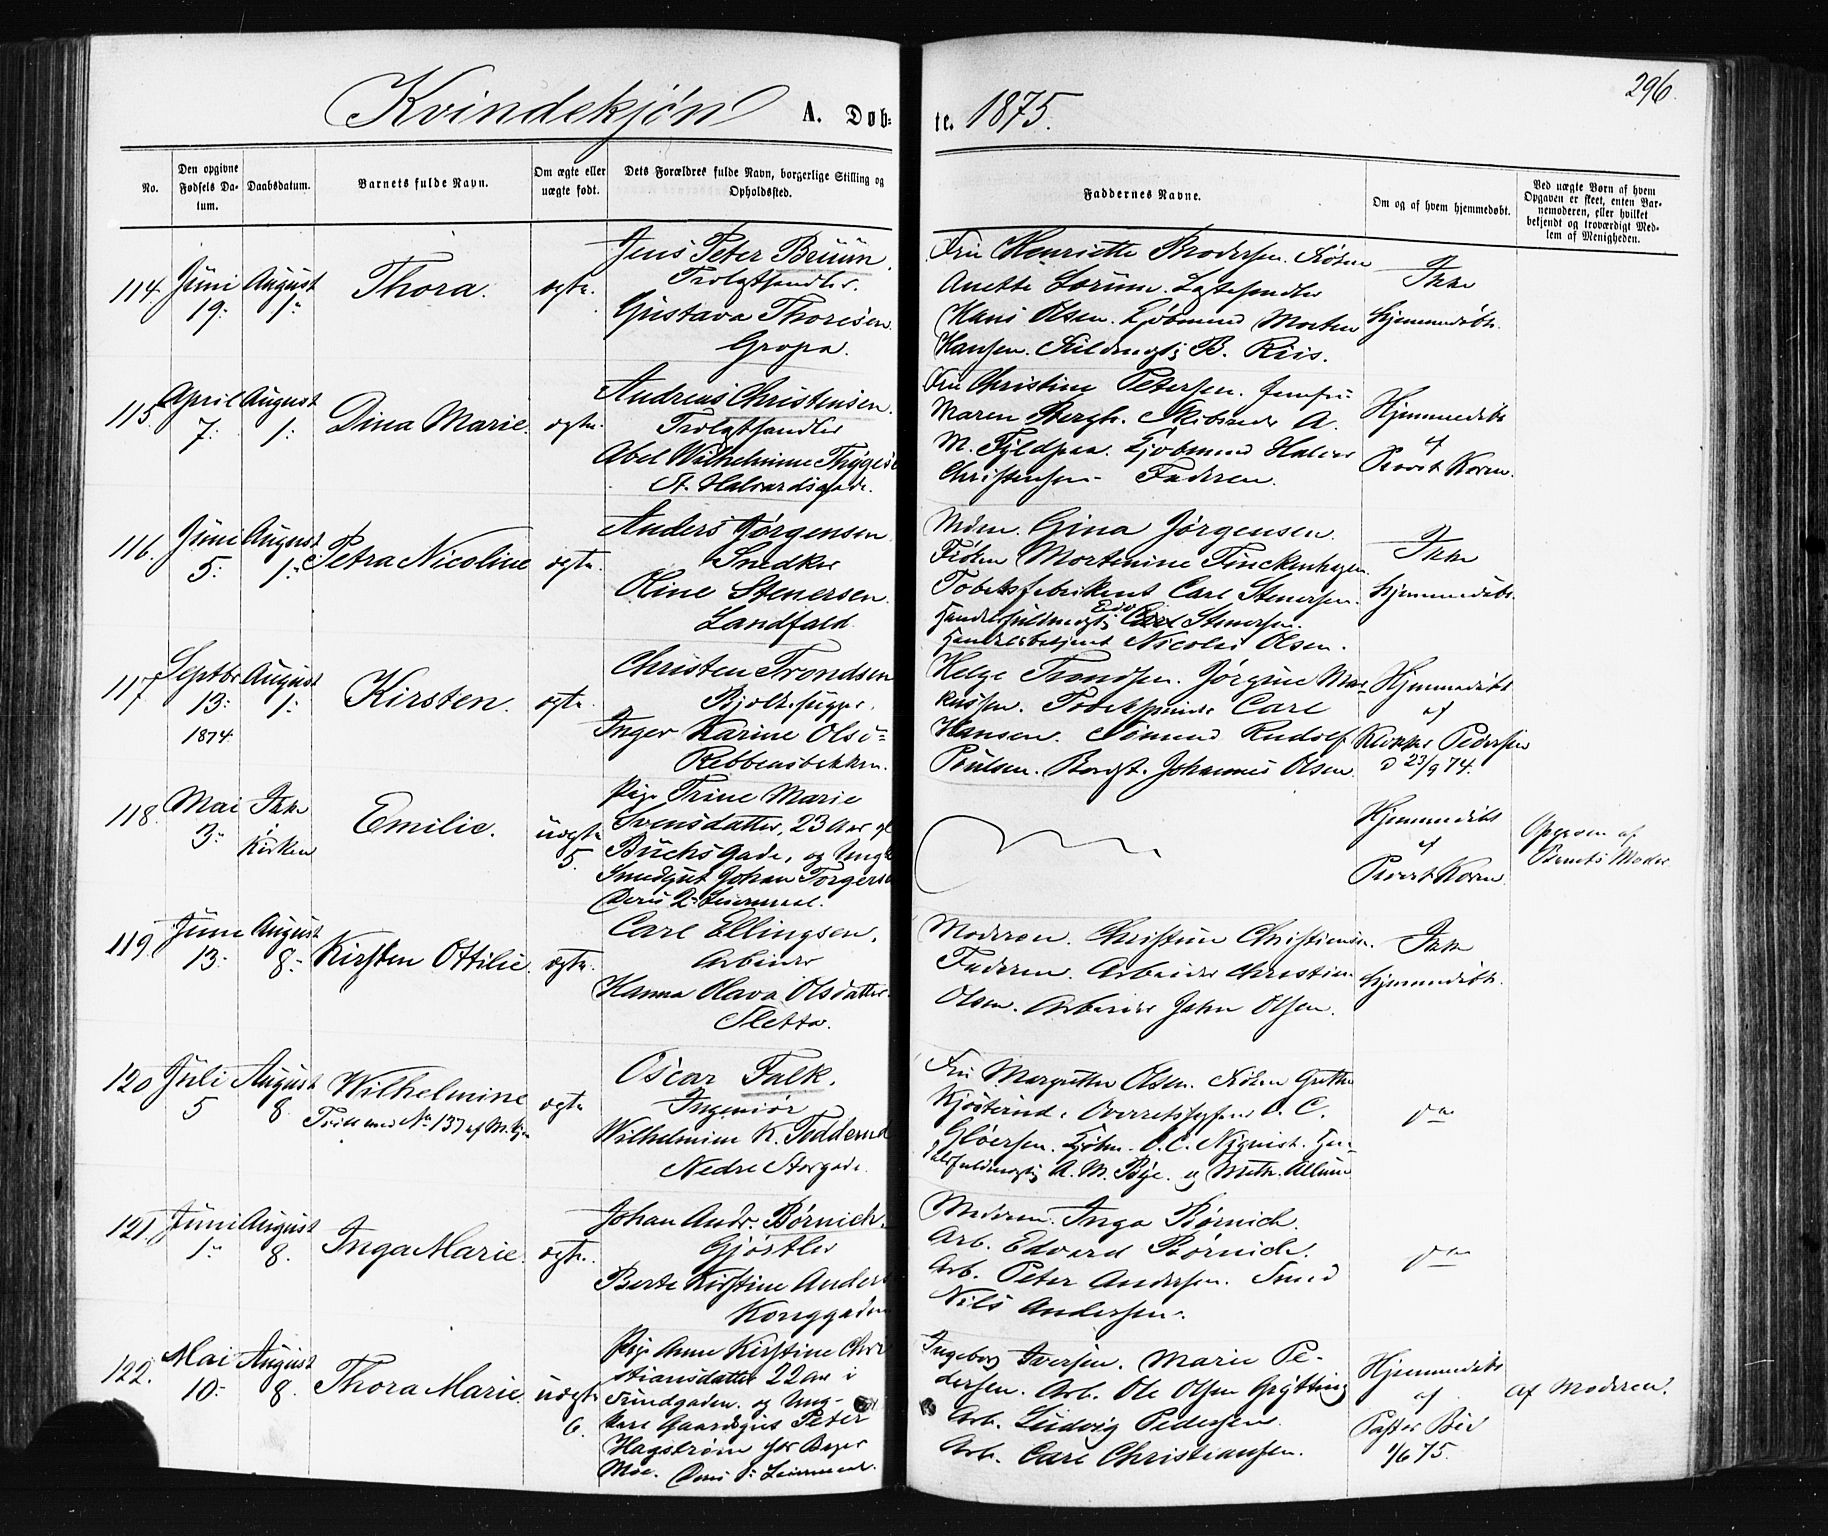 296.
Kvindekjøn A. Døb-
te. 1875.
No.
Den opgivne Fødsels Da-
tum.
Daabsdatum.
Barnets fulde Navn.
Om ægte eller
uægte født.
Dets Forældres fulde Navn, borgerlige Stilling og
Opholdssted.
Faddernes Navne.
Om og af hvem hjemmedøbt.
Ved uægte Børn af hvem
Opgaven er skeet, enten Bar-
nemoderen, eller hvilket
bekjendt og troværdigt Med-
lem af Menigheden.
114. Juni 19. August 1.
Thora.
ægte.
Jens Peter Bruun.
Gustava Thoresen.
Fru Henriette Brodersen. Frøken
Hans Olsen. Kjøbmand Morten
Hansen. Fuldmægtig B. Riis.
Ikke
hjemmedøbt.
115. April 7. August 1.
Dina Marie.
ægte.
Andreas Christensen.
Abel Wilhelmine Thygese
St. Halvardsgade.
Fru Christine Petersen. Jomfru
Maren Bergh. Skibsreder A.
M. Fyldpaa. Kjøbmand Halvor
Christensen. Faderen.
Hjemmedøbt
af
Provst Koren.
116. Juni 5. August 1.
Petra Nicoline
ægte.
Anders Jørgensen
Snedker
Oline Stenersen.
Landfald.
Mdm. Gina Jørgensen.
Frøken Mortenine Finckenhagen.
Tobaksfabrikant Carl Stenersen.
Handelsfuldmægtig Stenersen.
Handelsbetjent Nicolai Olsen.
Ikke
hjemmedøbt.
117. Septbr 13. 1874. August 1.
Kirsten.
ægte.
Christen Trondsen
Bjelkehugger.
Inger Karine Ols-
Rebbensbakken.
Helge Trondsen. Jørgine Mar-
kussen. Carl
Hansen. Sømand Rudolf
Poulsen. Johannes Olsen.
Hjemmedøbt
af
Klokker Pedersen
d 23/9 74.
118. Mai 3. Ikke i Kirken
Emilie.
uægte
5.
Pige Trine Marie
Svensdatter, 23 Aar gl
Buchsgade, og Ungk
Smedgut Johan Torgersen
Deres 2. Leiermaal.
Hjemmedøbt
af
Provst Koren
Opgiven af
Barnets Moder
119. Juni 13. August 8.
Kirsten Ottilie.
ægte.
Carl Ellingsen.
Arbeider
Hanna Olava Olsdatter.
Sletta.
Moderen. Christine Christiansen.
Faderen. Arbeider Christian
Olsen. Arbeider John Olsen.
Ikke
hjemmedøbt.
120. Juli 5 August 8.
Wilhelmine
Tvilling med No 137 af M.kjøn
ægte
Oscar Falk.
Ingeniør
Wilhelmine K.
Nedre Storgade.
Fru Margrethe Olsen. Frøken Grethe
Kjøsterud. Overretssagfører O. C.
Gløersen. Kjøbm. O. C. Nyquist. Han-
delsfuldmægtig A. M. Bye.
do
121. Juni 1. August 8.
Inga Marie.
ægte.
Johan Andr. Børnich.
Gjørtler
Berte Kirstine Anders
Konggaden
Moderen. Inga Børnich.
Arb. Edvard Børnich.
Arb. Peter Andersen. Smed
Nils Andersen.
do
122. Mai 10. August 8.
Thora Marie.
uægte
6.
Pige Anne Kirstine Chri
stiansdatter 22 Aar i
Tundgaden. og Ung-
karl Gaardsgut Peter
Hagstrøm
Moe. Deres 1. Leiermaal.
Ingeborg Iversen. Marie Pe-
dersen. Arb. Ole Olsen Grytting
Arb. Ludvig Pedersen.
Arb. Carl Christiansen.
Hjemmedøbt
af
Pastor
1/6 75.
Af Moderen.